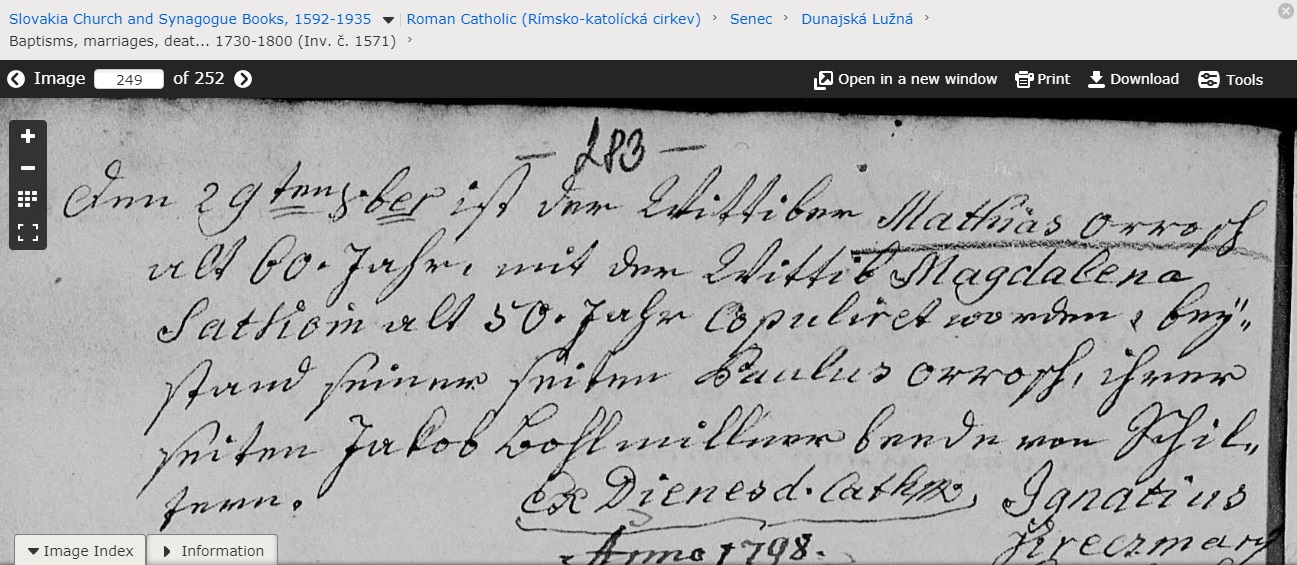 Slovakia Church and Synagogue Books, 1592-1935 Roman Catholic (Rímsko-katolícká cirkev) › Senec › Dunajská Lužná ›
Baptisms, marriages, deat... 1730-1800 (Inv. č. 1571) ›
Image 249 of 252 Open in a new window Print Download Tools
— 283 —
den 29ten 8ber ist der Wittiber Mathias Orrosch
alt 60. Jahr, mit der Wittib Magdalena
alt 50. Jahr Copuliret worden, bey„
stand seiner seiten Paulus Orrosch, ihrer
seiten Jakob Bohlmillner beede von Schil„
tern. Ex Dienesd. CathK, Ignatius
Anno 1798. Kreczmary
Image Index Information